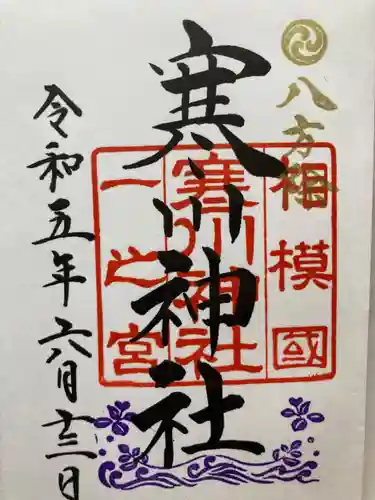 八方除
寒川神社
相模國
寒川神社
一之宮
令和五年六月十三日